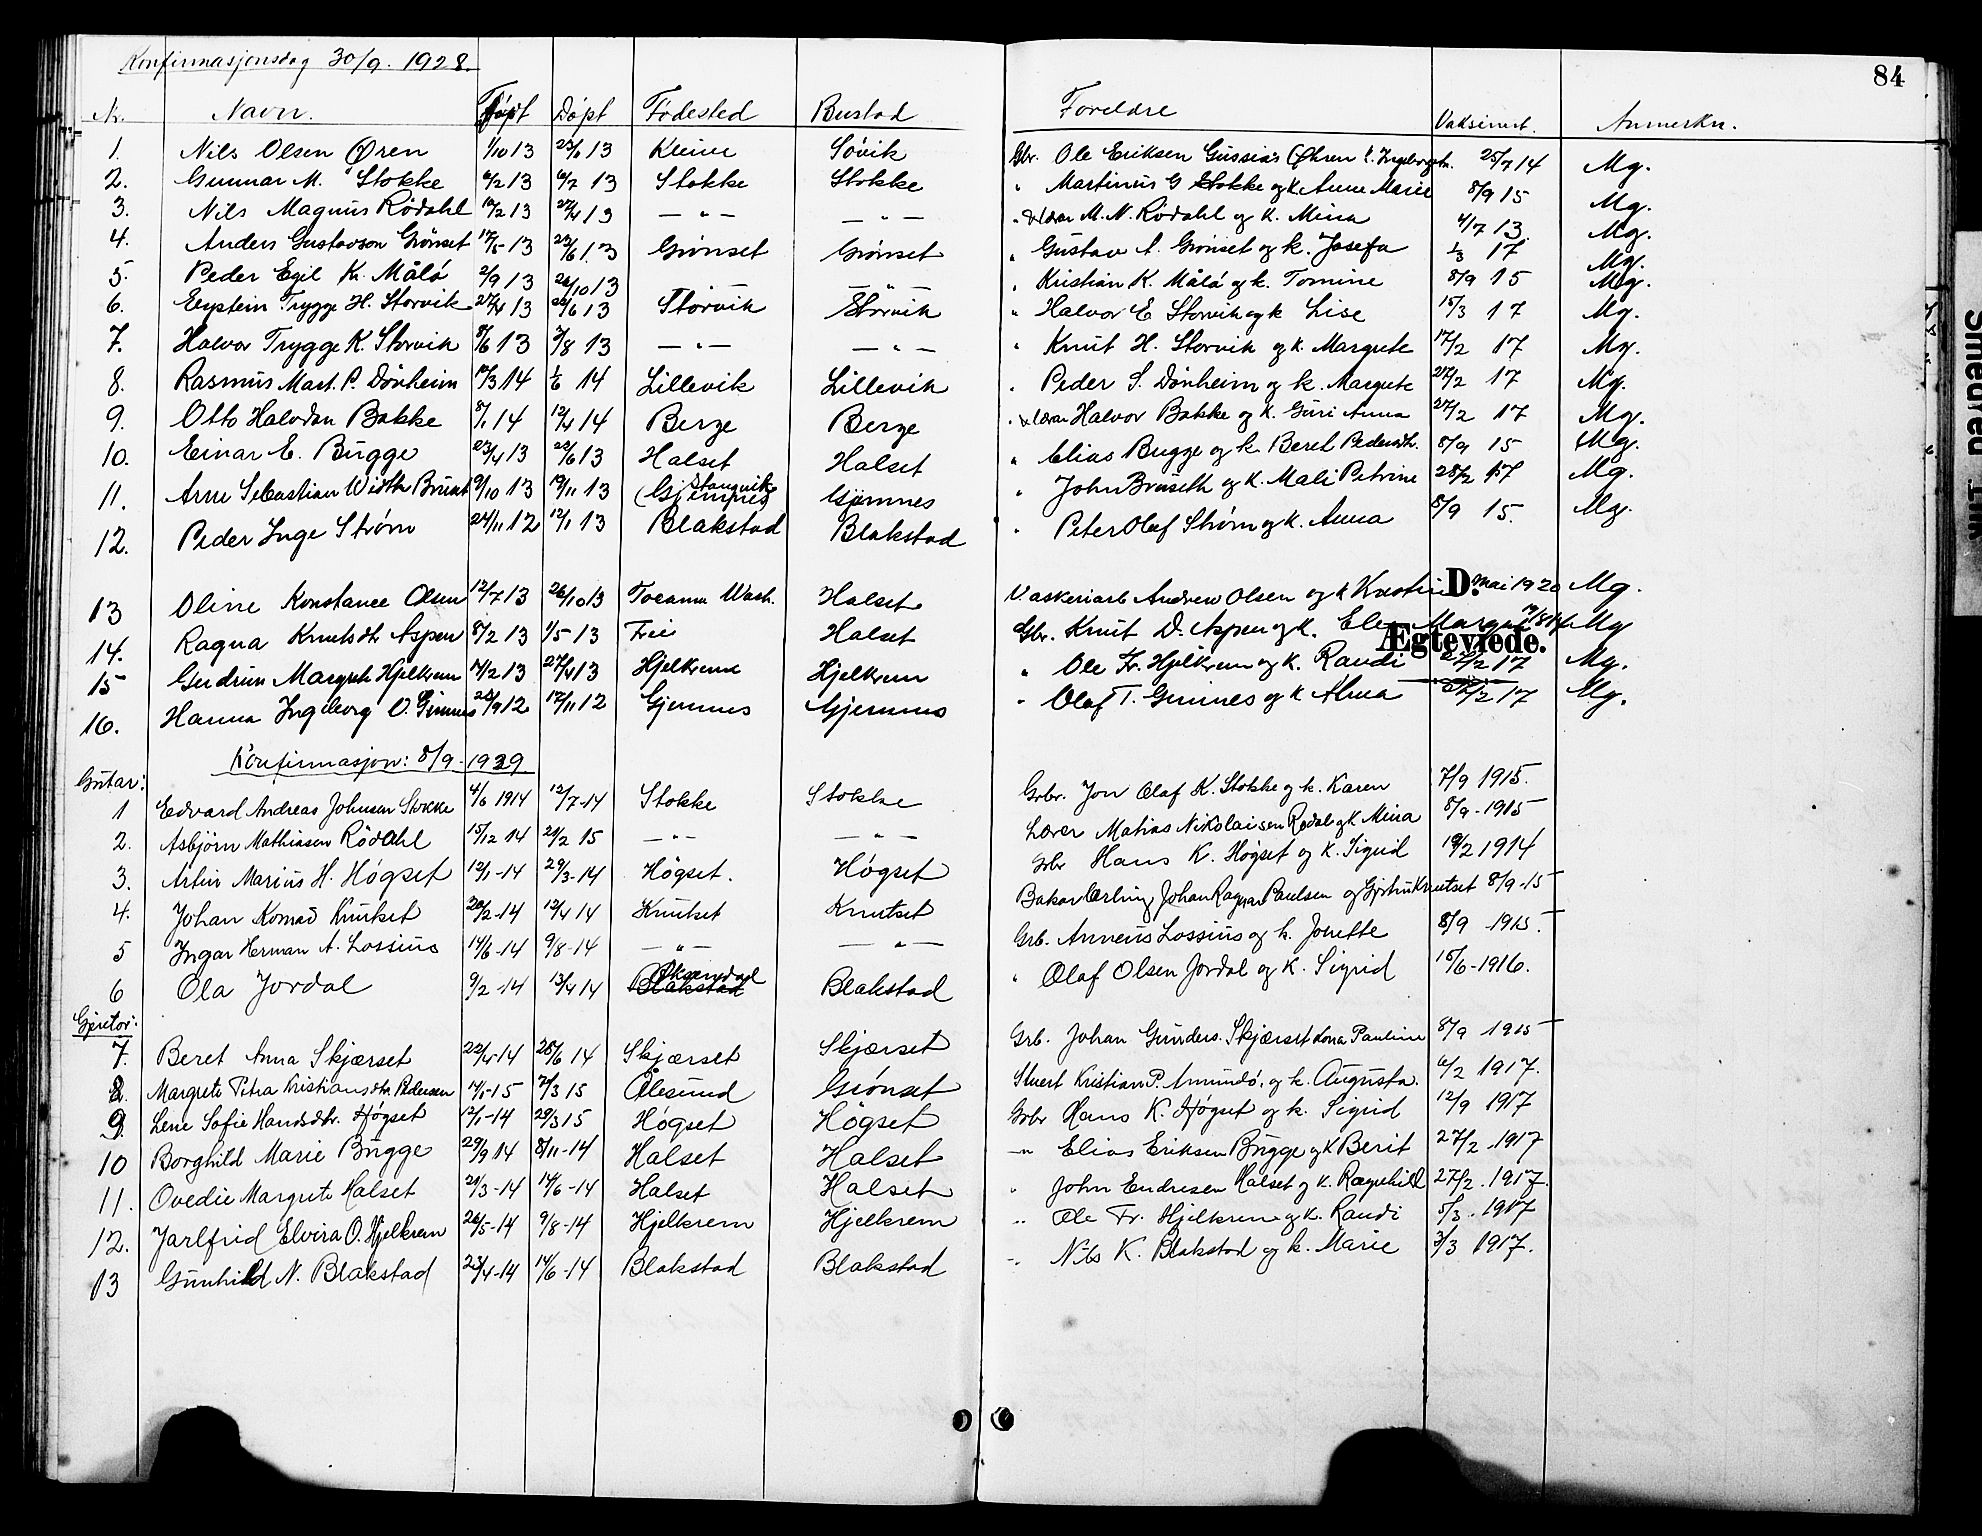 84
Konfirmasjonsdag 30/9. 1928.
Nr. Navn. Født Døpt Fødested Bustad Foreldre Vaksinert. Anmerkn.
1. Nils Olsen Øren 1/10 13 13 Søvik Gbr. Ole Eriksen Gussiås (Øhren) 25/7 14 Mg.
2. Gunnar M. Stokke 6/2 13 13 Stokke Stokke " Martinus G Stokke og k. Anne Marie 8/9 15 Mg.
3. Nils Magnus Rødahl 13 27/4 13 — " — — " — M. N. Rødahl og k. Mina 4/7 13 Mg.
4. Anders Gustavson Grønset 17/5 13 22/6 13 Grønset Grønset " Gustav A. Grønset og k. Josefa 1/3 17 Mg.
5. Peder Egil Kr. Målø 2/9 13 26/10 13 — " — — " — " Kristian K. Målø og k. Tomine 8/9 15 Mg.
6. Eystein Trygge H. Storvik 27/4 13 22/6 13 Storvik Storvik " Halvor E Storvik og k Lise 15/3 17 Mg.
7. Halvor Trygge K. Storvik 8/6 13 3/8 13 — " — — " — " Knut H. Storvik og k. Margrete 17/2 17 Mg.
8. Rasmus Mart. P. Dønheim 14 1/6 14 Lillevik Lillevik " Peder S. Dønheim og k. Margrete 27/2 17 Mg.
9. Otto Halvdan Bakke 8/1 14 12/4 14 Berge Berge " Halvor Bakke og k. Guri Anna 27/2 17 Mg.
10. Einar E. Bugge 23/4 13 22/6 13 Halset Halset " Elias Bugge og k. Beret Pedersdtr. 8/9 15 Mg.
11. Arne Sebastian Width 13 19/11 13 (Gjemnes) Stangvik Gjemnes " John Bruseth og k. Mali Petrine 28/2 17 Mg.
12. Peder Inge Strøm 24/11 12 12/1 13 Blakstad Blakstad " Peter Olaf Strøm og k. Anna 8/9 15. Mg.
13 Oline Konstance Olsen 12/7 13 26/10 13 Tocoma Wash. Halset Vaskeriarb Andrew Olsen og k Mai 1920 Mg.
D.
14. Ragna Knutsdtr Aspen 8/2 13 1/5 13 Frei Halset Gbr. Knut D. Aspen og k. Elen Mg
Ægteviede.
15 Gudrun Margrete Hjelkrem 14/2 13 27/4 13 Hjelkrem Hjelkrem " Ole Fr. Hjelkrem og k. Randi 27/2 17 Mg.
16. Hanna Ingeborg O. Gimnes 12 17/11 12 Gjemnes Gjemnes " Olaf T. Gimnes og k Alma 27/2 17 Mg.
Konfirmasjon: 8/9 - 1929
Gutar:
1 Edvard Andreas Johnsen Stokke 4/6 1914 12/7-14 Stokke Stokke Grbr. Jon Olaf K. Stokke og k. Karen 7/9 1915.
2. Asbjørn Mathiasen Rødahl 15/12 14 21/2 15 — " — — " — Lærer Matias Nikolaisen Rødal og k Mina 8/9-1915
3. Artur Marius H. Høgset 12/1-14 29/3-14 Høgset. Høgset Grbr Hans K. Høgset og k. Sigrid 19/2 1914
4. Johan Konrad Knutset 20/2-14 12/4 14 Knutset Knutset Johan Ragnar Paulsen og Knutset 8/9-15
5 Ingar Herman A. Lossius 14/6-14 9/8-14 — " — — " — Grb. Anneus Lossius og k. Jonette 8/9 1915.
6 Ola Jordal 9/2-14 13/4 14 Øksendal Blakstad Blakstad " Olaf Olsen Jordal og k. Sigrid 15/6-1916.
Gjentor:
7. Beret Anna Skjærset 22/4-14 28/6 14 Skjærset Skjærset Grb. Johan Gunders. Skjærset kona Pauline 8/9 1915
8. Margrete Petra Kristiansdtr. Pedersen 14/1-15 7/3 15 Ålesund Grønset Stuert Kristian P. Amundö. og k. Augusta. 6/2 1917.
9. Lene Sofie Hansdtr. Høgset 12/1-14 29/3 15 Høgset Høgset Grbr Hans K. Høgset og k. Sigrid 12/9 1917
10 Borghild Marie Bugge 29/9 14 8/11-14 Halset Halset —"— Elias Eriksen Bugge og k Berit 27/2 1917
11. Ovedie Margrete Halset 21/3-14 14/6-14 Halset Halset " John Endresen Halset og k. Ragnhild 27/2. 1917.
12. Jarlfrid Elvira O. Hjelkrem 26/5-14 9/8-14 Hjelkrem Hjelkrem " Ole Fr. Hjelkrem og k. Randi 5/3. 1917
13 Gunhild N. Blakstad 23/4-14 14/6-14 Blakstad Blakstad " Nils K. Blakstad og k. Marie 3/3 1917.